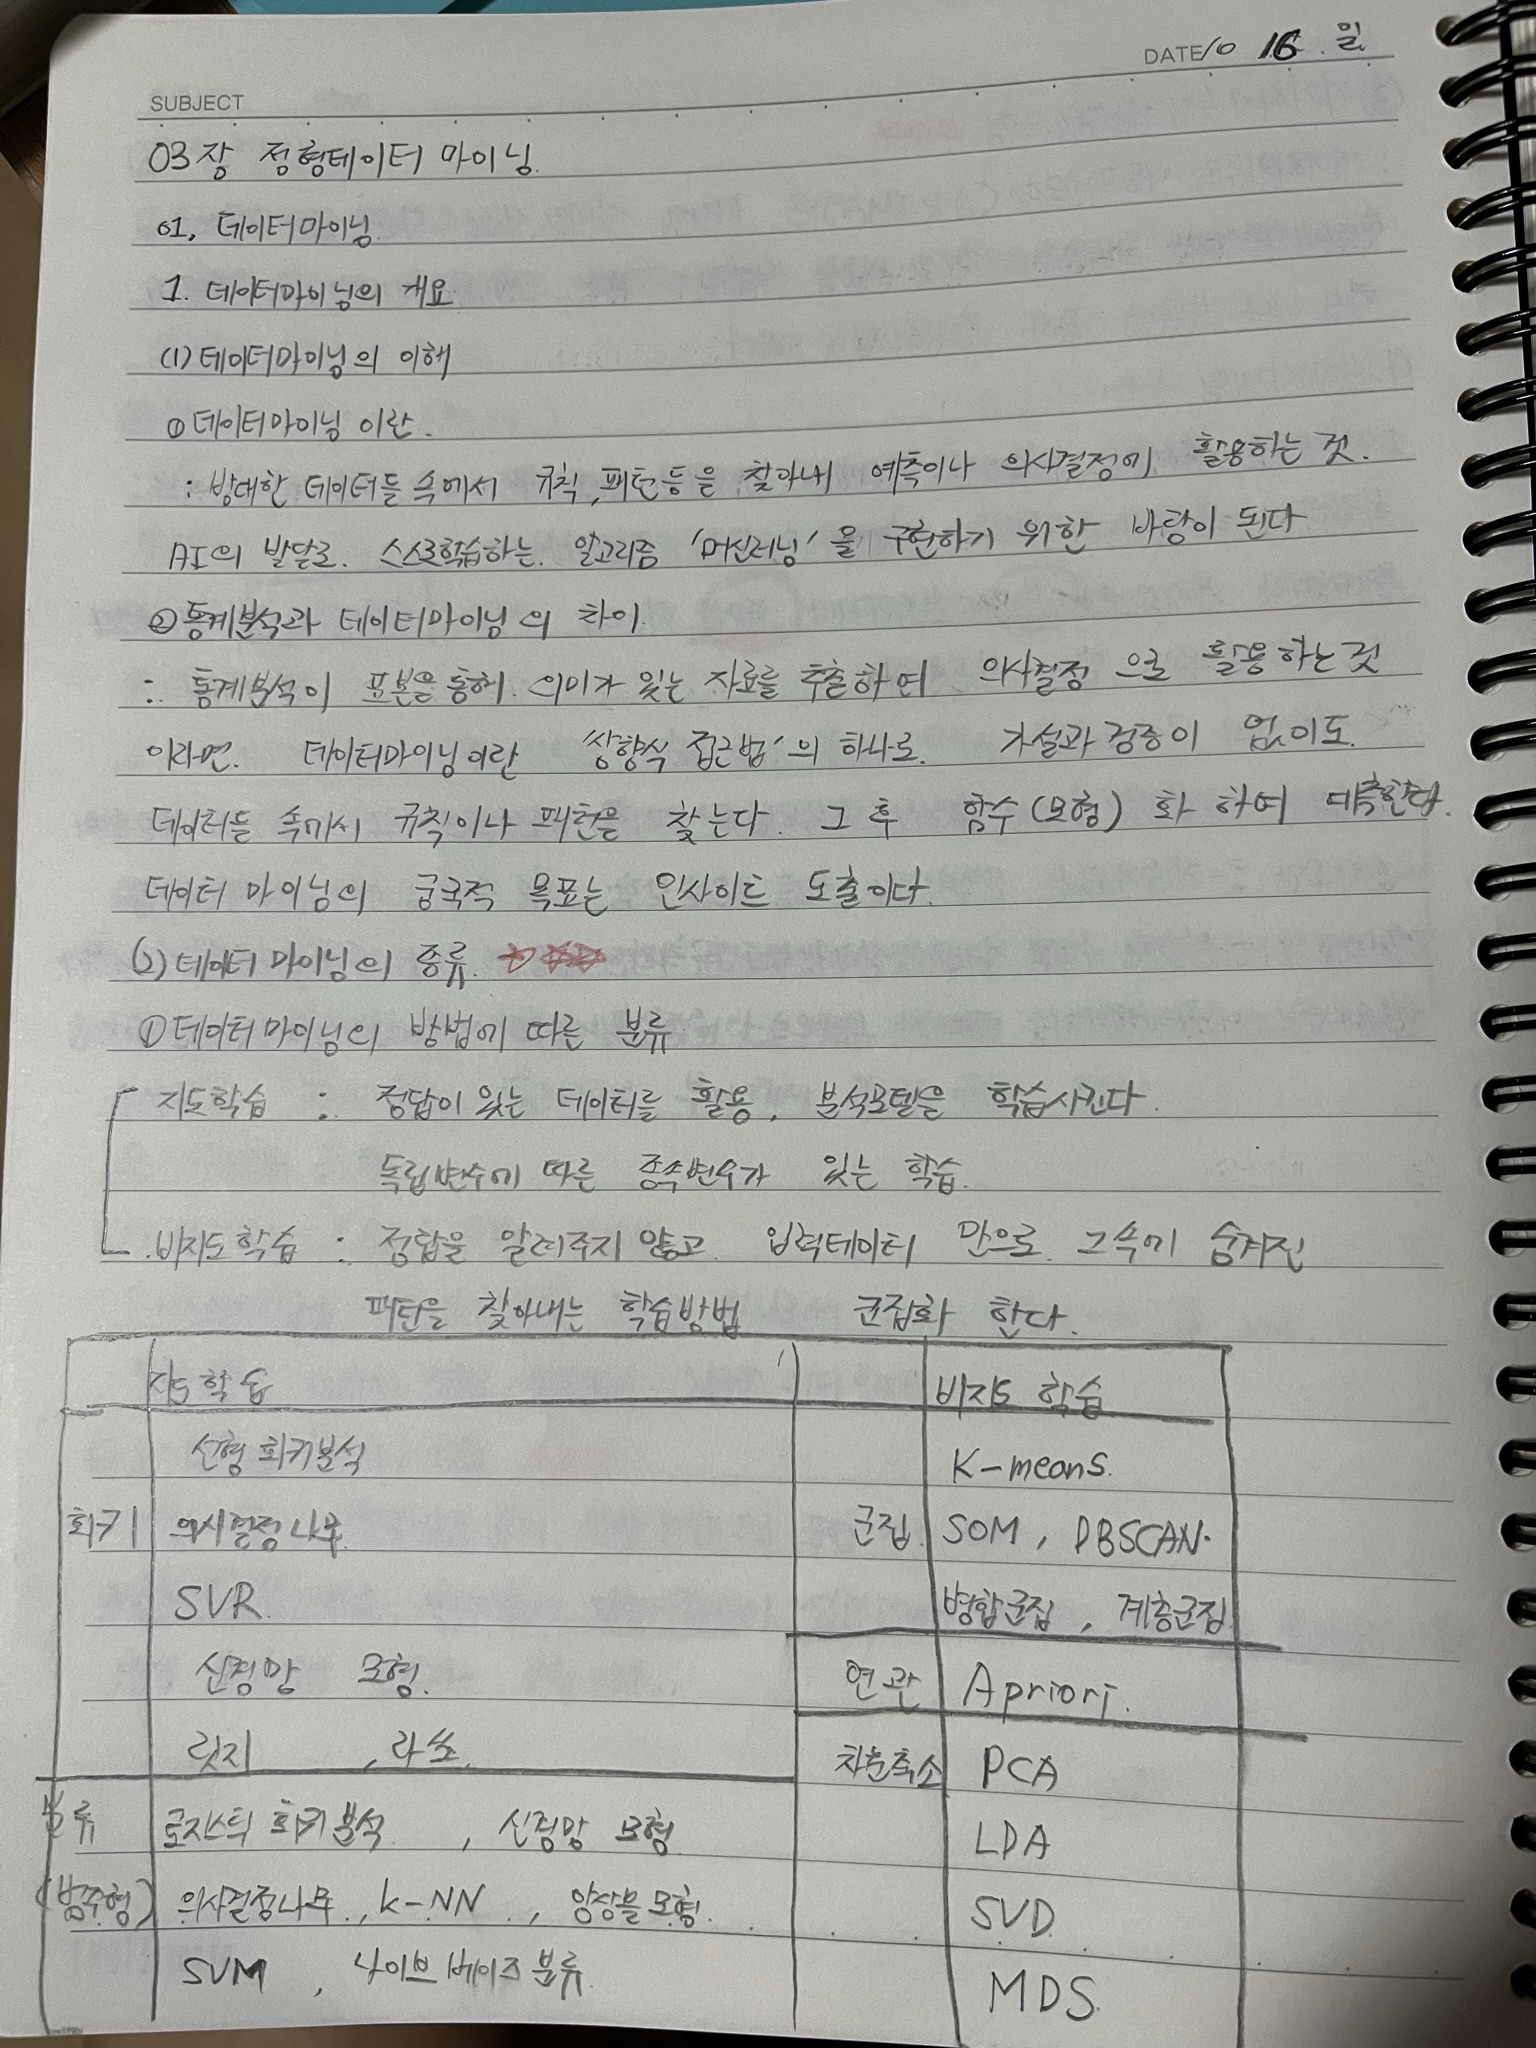 DATE 10 16 . 일
SUBJECT
03장 정형데이터 마이닝
01. 데이터마이닝
1. 데이터마이닝의 개요
(1) 데이터마이닝의 이해
① 데이터마이닝 이란.
: 방대한 데이터들 속에서 규칙, 패턴등을 찾아내 예측이나 의사결정에 활용하는 것.
AI의 발달로. 스스로학습하는. 알고리즘 '머신러닝'을 구현하기 위한 바탕이 된다
② 통계분석과 데이터마이닝의 차이
: 통계분석이 표본을 통해. 의미가 있는 자료를 추출하여 의사결정 으로 활용하는것
이라면. 데이터마이닝이란 '상향식 접근법'의 하나로. 가설과 검증이 없이도.
데이터들 속에서 규칙이나 패턴을 찾는다. 그 후 함수(모형) 화 하여 예측한다.
데이터 마이닝의 궁극적 목표는 인사이트 도출이다.
(2) 데이터 마이닝의 종류.
① 데이터 마이닝의 방법에 따른 분류
지도학습 : 정답이 있는 데이터를 활용, 분석모델을 학습시킨다
독립변수에 따른 종속변수가 있는 학습.
비지도학습 : 정답을 알려주지 않고 입력데이터 만으로. 그속에 숨겨진
패턴을 찾아내는 학습방법 군집화 한다.
지도학습 비지도 학습
선형 회귀분석 K-means.
회귀 의사결정나무 군집 SOM, DBSCAN.
SVR 병합군집, 계층군집
신경망 모형. 연관 Apriori.
릿지 , 라쏘. 차원축소 PCA
분류 로지스틱 회귀분석 , 신경망 모형 LDA
(범주형) 의사결정나무, k-NN , 앙상블모형. SVD
SVM , 나이브 베이즈 분류. MDS